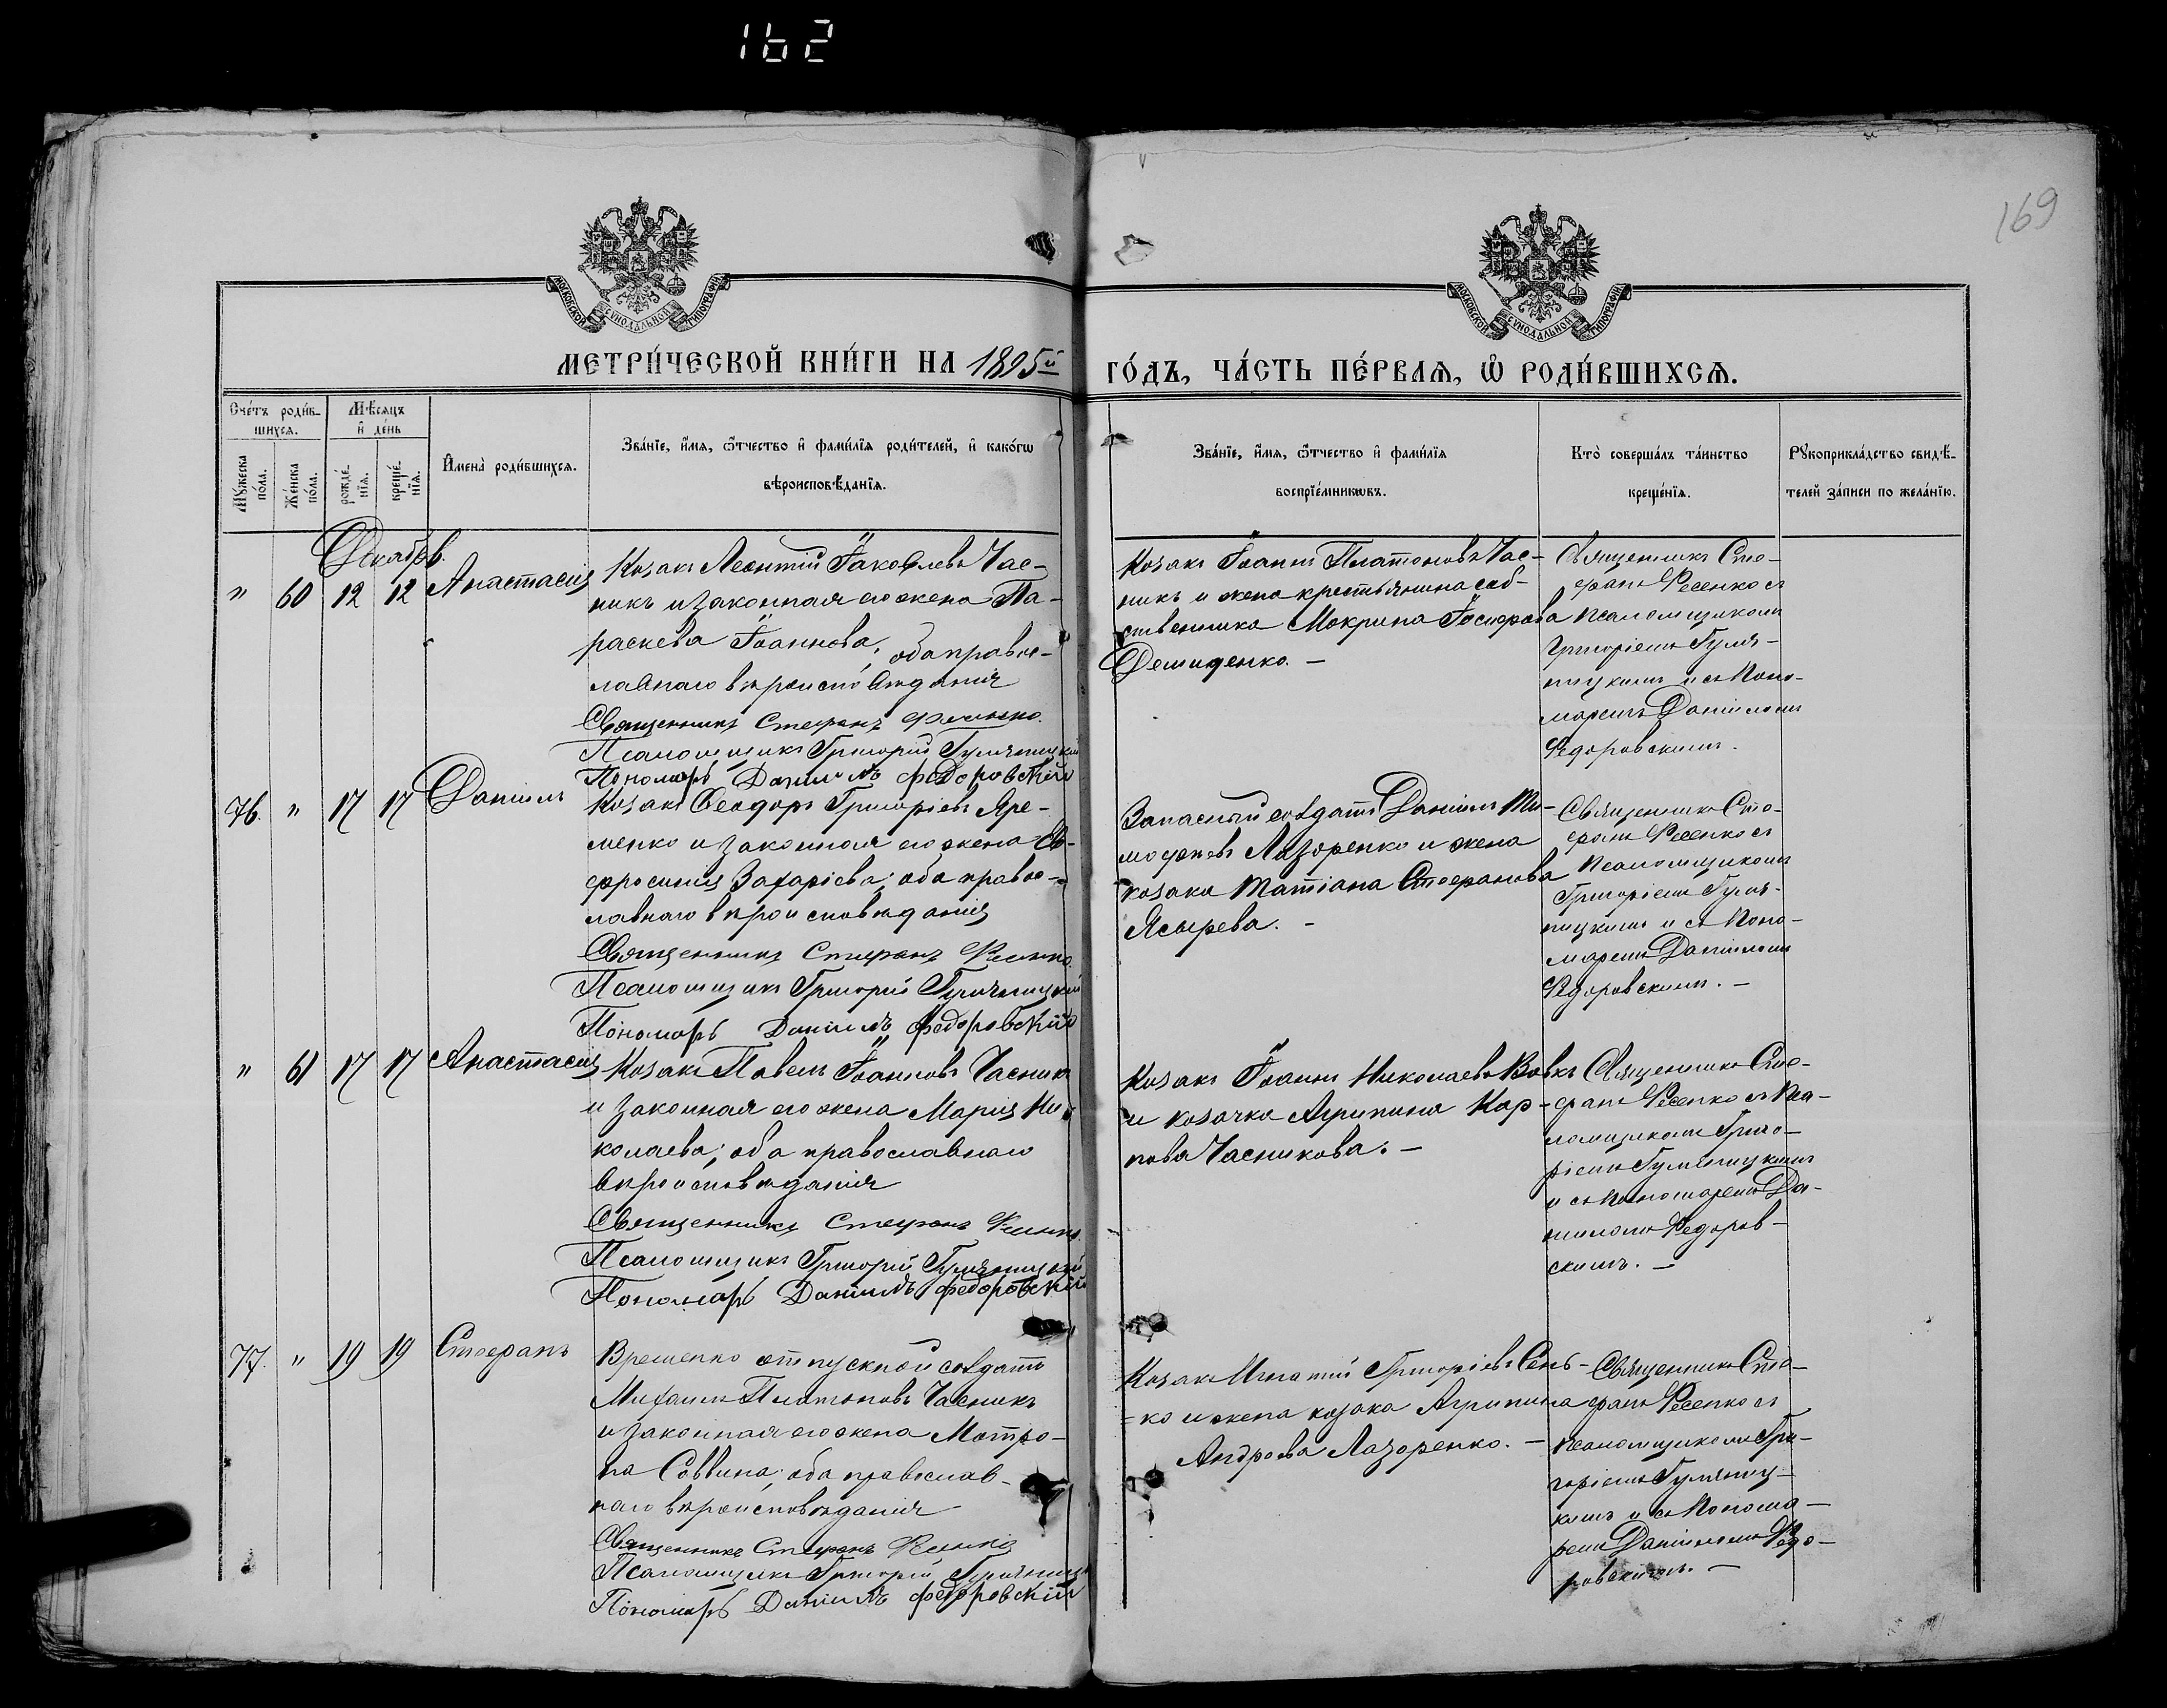 162
169
МОСКОВСКОЙ СѴНОДАЛЬНОЙ ТИПОГРАФІИ
МОСКОВСКОЙ СѴНОДАЛЬНОЙ ТИПОГРАФІИ
МЕТРИ́ЧЕСКОЙ КНИ́ГИ НА 1895й ГО́ДЪ, ЧА́СТЬ ПЕ́РВАѦ, Ѽ РОДИ́ВШИХСѦ.
Сче́тъ роди́в-
шихсѧ.
Мѣ́сѧцъ
и҆ де́нь
Мꙋ́жеска
по́ла.
Же́нска
по́ла.
рожде́-
нїѧ.
креще́-
нїѧ.
И҆мена̀ роди́вшихсѧ.
Зва́нїе, и҆́мѧ, ѻ҆́тчество и҆ фами́лїѧ роди́телей, и҆ како́гѡ
вѣроисповѣ́данїѧ.
Зва́нїе, и҆́мѧ, ѻ҆́тчество и҆ фами́лїѧ
воспрїе́мникѡвъ.
Кто̀ соверша́лъ та́инство
креще́нїѧ.
Рꙋкоприкла́дство свидѣ́-
телей за́писи по жела́нїю.
Декабрь
" 60 12 12 Анастасія
Козакъ Леонтій Іаковлевъ Час-
никъ и законная его жена Па-
раскева Іоаннова, оба правос-
лавнаго вѣроисповѣданія
Священникъ Стефанъ Фесенко.
Псаломщикъ Григорій Гумяницкій
Пономарь Даніилъ Федоровскій
Козакъ Іоаннъ Платоновъ Час-
никъ и жена крестьянина соб-
ственника Мокрина Іосифова
Демиденко. -
Священникъ Сте-
фанъ Фесенко съ
псаломщикомъ
Григоріемъ Гумя-
ницкимъ и съ Поно-
маремъ Даніиломъ
Федоровскимъ.
76. " 17 17 Даніилъ
Козакъ Феодоръ Григоріевъ Яре-
менко и законная его жена Ев-
фросинія Захаріева; оба правос-
лавнаго вѣроисповѣданія
Священникъ Стефанъ Фесенко.
Псаломщикъ Григорій Гумяницкій
Пономарь Даніилъ Федоровскій
Запасный солдатъ Даніилъ Ти-
мофеевъ Лазоренко и жена
козака Татіана Стефанова
Ясырева. -
Священникъ Сте-
фанъ Фесенко съ
псаломщикомъ
Григоріемъ Гумя-
ницкимъ и съ Поно-
маремъ Даніиломъ
Федоровскимъ. -
" 61 17 17 Анастасія
Козакъ Павелъ Іоанновъ Часникъ
и законная его жена Марія Ни-
колаева; оба православнаго
вѣроисповѣданія
Священникъ Стефанъ Фесенко.
Псаломщикъ Григорій Гумяницкій
Пономарь Даніилъ Федоровскій
Козакъ Іоаннъ Николаевъ Вовкъ
и козачка Агрипина Кар-
пова Часникова. -
Священникъ Сте-
фанъ Фесенко съ Пса-
ломщикомъ Григо-
ріемъ Гумяницкимъ
и съ Пономаремъ Да-
ніиломъ Федоров-
скимъ. -
77. " 19 19 Стефанъ
Временно отпускной солдатъ
Михаилъ Платоновъ Часникъ
и законная его жена Матро-
на Саввина; оба православ-
наго вѣроисповѣданія
Священникъ Стефанъ Фесенко
Псаломщикъ Григорій Гумяницкій
Пономарь Даніилъ Федоровскій
Козакъ Игнатій Григоріевъ Сень-
=ко и жена козака Агрипина
Андреева Лазоренко. -
Священникъ Сте-
фанъ Фесенко съ
псаломщикомъ Гри-
горіемъ Гумяниц-
кимъ и съ Понома-
ремъ Даніиломъ Федо-
ровскимъ. -